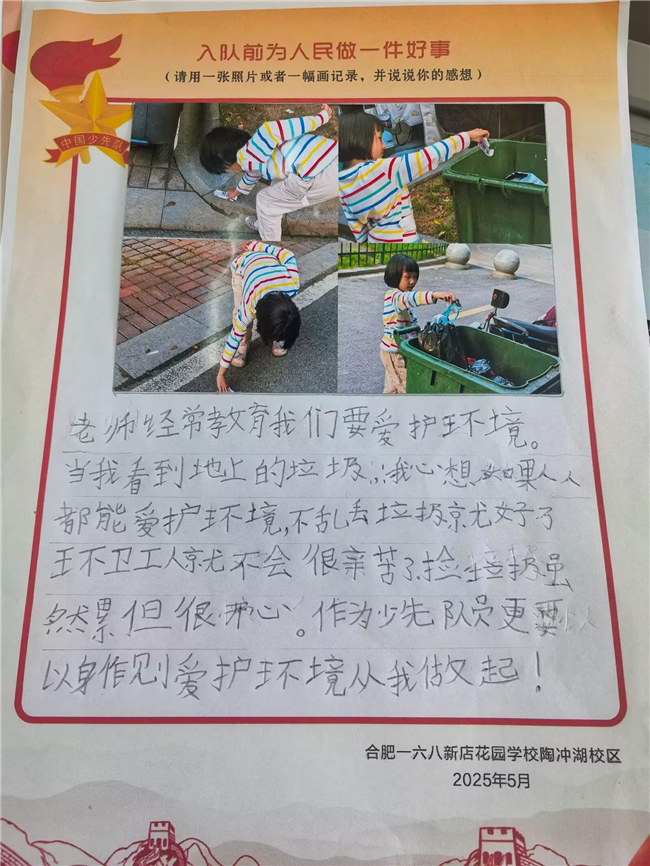 入队前为人民做一件好事
（请用一张照片或者一幅画记录，并说说你的感想）
中国少先队
老师经常教育我们要爱护环境。
当我看到地上的垃圾，我心想如果人人
都能爱护环境，不乱丢垃圾就好了
环卫工人就不会很辛苦了捡垃圾虽
然累但很开心。作为少先队员更要
以身作则爱护环境从我做起！
合肥一六八新店花园学校陶冲湖校区
2025年5月